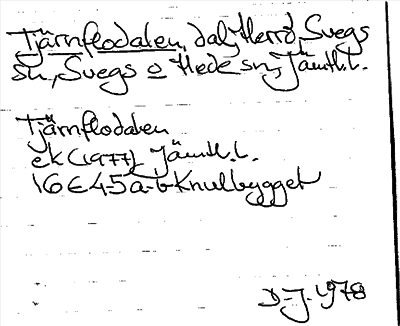 Tjärnflodalen, dal, Herrö, Svegs
sn, Svegs o Hede sn, Jämtl. l.
Tjärnflodalen
ek (1977) Jämtl. l.
16E 4-5 a-b Knulbygget
D-J. 1978